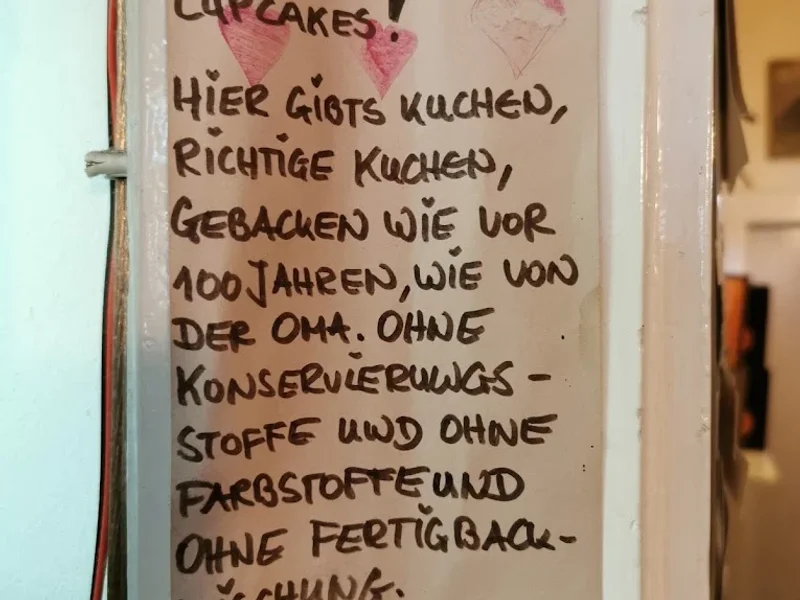 CUPCAKES!
HIER GIBTS KUCHEN,
RICHTIGE KUCHEN,
GEBACKEN WIE VOR
100 JAHREN, WIE VON
DER OMA. OHNE
KONSERVIERUNGS-
STOFFE UND OHNE
FARBSTOFFE UND
OHNE FERTIGBACK-
MISCHUNG.